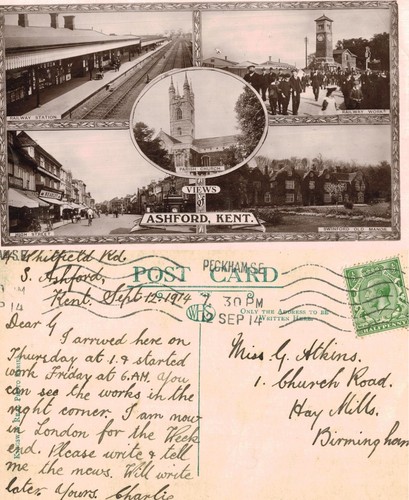 RAILWAY STATION
RAILWAY WORKS
PARISH CHURCH
HIGH STREET
VIEWS OF
ASHFORD, KENT.
POST CARD
PECKHAM S.E.
7 30 PM
SEP 14
ONLY THE ADDRESS TO BE
WRITTEN HERE.
HALFPENNY
S. Ashford,
Kent. Sept 12 1914
Dear G
I arrived here on
Thursday at 1. & started
work Friday at 6.AM. You
can see the works in the
right corner. I am now
in London for the Week
end. Please write &
tell
me the news. Will write
later. Yours. Charlie
Miss G. Atkins.
1. Church Road.
Hay Mills.
Birmingham